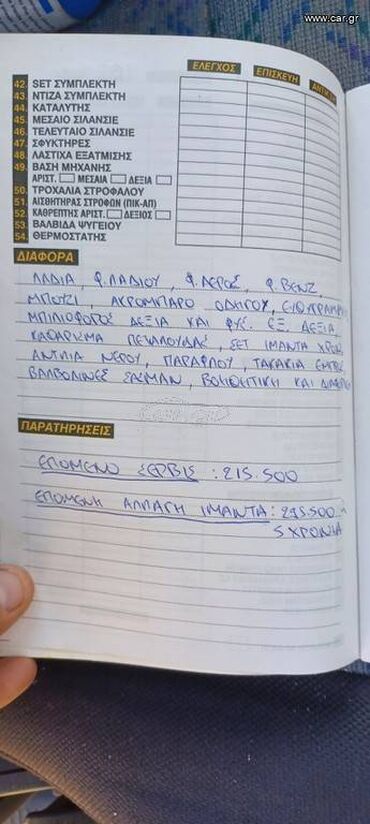 www.car.gr
ΕΛΕΓΧΟΣ ΕΠΙΣΚΕΥΗ
42. SET ΣΥΜΠΛΕΚΤΗ
43. ΝΤΙΖΑ ΣΥΜΠΛΕΚΤΗ
44. ΚΑΤΑΛΥΤΗΣ
45. ΜΕΣΑΙΟ ΣΙΛΑΝΣΙΕ
46. ΤΕΛΕΥΤΑΙΟ ΣΙΛΑΝΣΙΕ
47. ΣΦΥΚΤΗΡΕΣ
48. ΛΑΣΤΙΧΑ ΕΞΑΤΜΙΣΗΣ
49. ΒΑΣΗ ΜΗΧΑΝΗΣ
ΑΡΙΣΤ. ΜΕΣΑΙΑ ΔΕΞΙΑ
50. ΤΡΟΧΑΛΙΑ ΣΤΡΟΦΑΛΟΥ
51. ΑΙΣΘΗΤΗΡΑΣ ΣΤΡΟΦΩΝ (ΠΙΚ-ΑΠ)
52. ΚΑΘΡΕΠΤΗΣ ΑΡΙΣΤ. ΔΕΞΙΟΣ
53. ΒΑΛΒΙΔΑ ΨΥΓΕΙΟΥ
54. ΘΕΡΜΟΣΤΑΤΗΣ
ΔΙΑΦΟΡΑ
ΛΑΔΙΑ, Φ.ΛΑΔΙΟΥ, Φ.ΑΕΡΟΣ, Φ.ΒΕΝΖ,
ΜΠΟΥΖΙ, ΑΚΡΟΜΠΑΡΟ ΟΔΗΓΟΥ,
ΜΠΙΛΙΟΦΟΡΟΣ ΔΕΞΙΑ ΚΑΙ ΕΞ. ΔΕΞΙΑ
ΚΑΘΑΡΙΣΜΑ ΠΕΤΑΛΟΥΔΑΣ, SET ΙΜΑΝΤΑ
ΑΝΤΛΙΑ ΝΕΡΟΥ, ΠΑΡΑΦΛΟΥ, ΤΑΚΑΚΙΑ
ΒΑΛΒΟΛΙΝΕΣ ΣΑΣΜΑΝ, ΒΟΗΘΗΤΙΚΗ ΚΑΙ
ΠΑΡΑΤΗΡΗΣΕΙΣ
ΕΠΟΜΕΝΟ ΣΕΡΒΙΣ : 215.500
ΕΠΟΜΕΝΗ ΑΛΛΑΓΗ ΙΜΑΝΤΑ : 295.500
5 ΧΡΟΝΙΑ